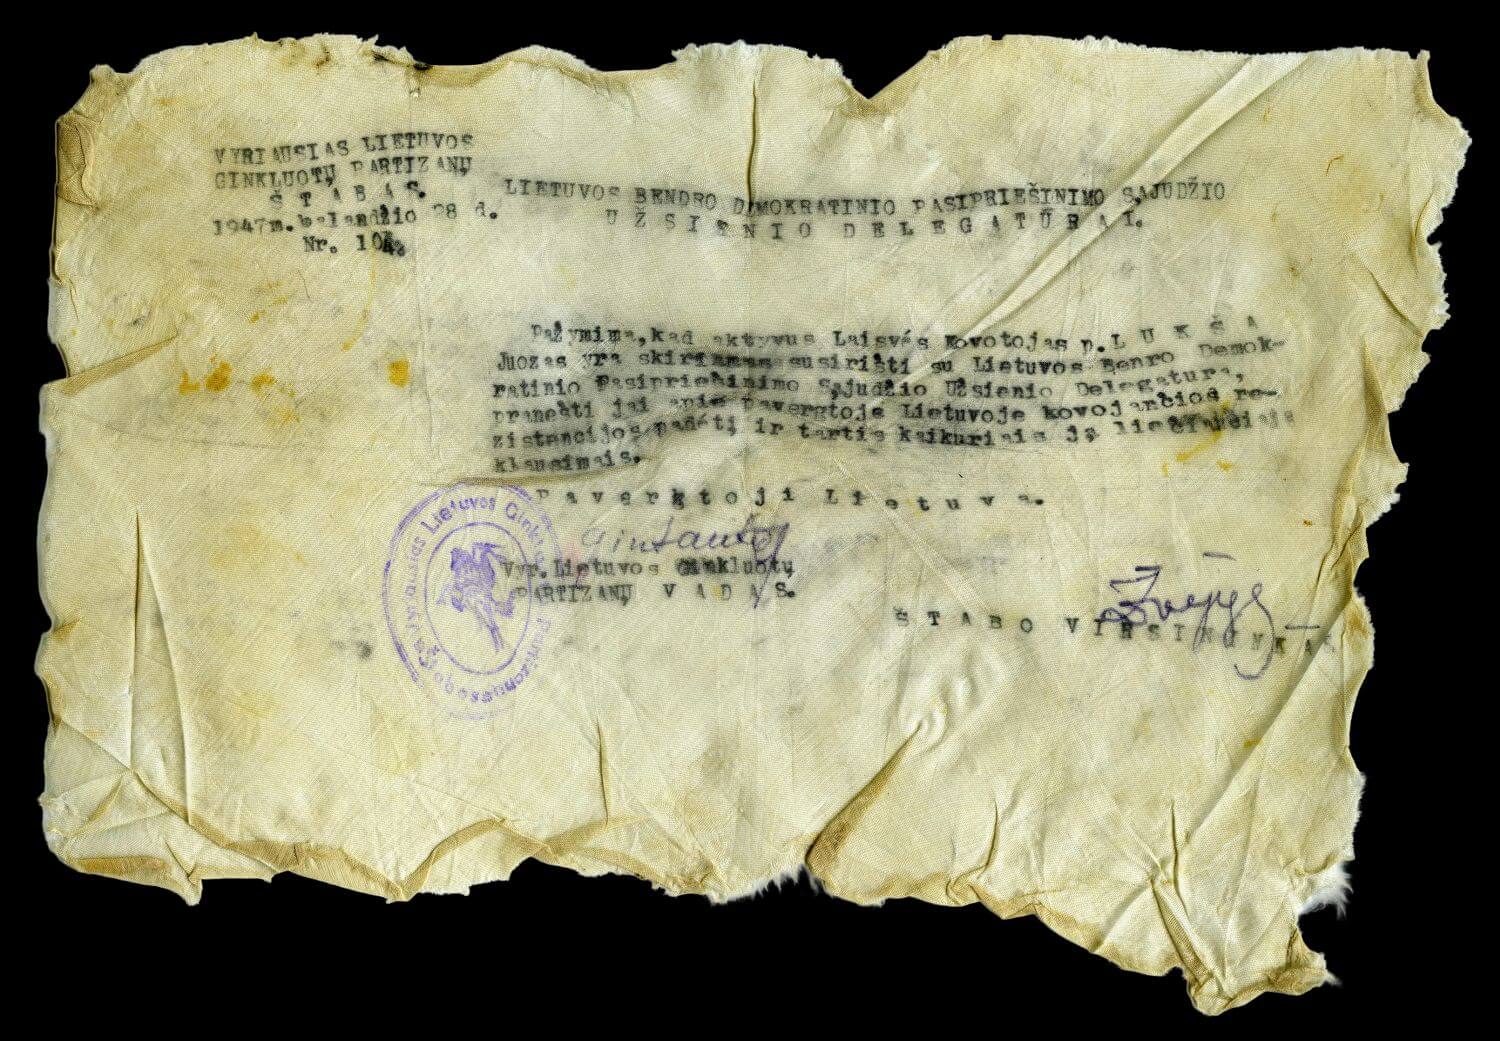 VYRIAUSIAS LIETUVOS
GINKLUOTŲ PARTIZANŲ
Š T A B A S.
1947m. balandžio 28 d.
Nr. 104
LIETUVOS BENDRO DIMOKRATINIO PASIPRIEŠINIMO SĄJUDŽIO
U Ž S I E N I O D E L E G A T Ū R A I.
Pažymima, kad aktyvus Laisvės Kovotojas p. L U K Š A
Juozas yra skiriamas susirišti su Lietuvos Benro Demok-
ratinio Pasipriešinimo Sąjudžio Užsienio Delegatura,
pranešti jai apie Pavergtoje Lietuvoje kovojančios re-
zistencijos padėtį ir tartis kaikuriais ją liečiančiais
klausimais.
P a v e r g t o j i L i e t u v a.
Gintautas
Vyr. Lietuvos Ginkluotų
PARTIZANŲ V A D A S.
Žvejys
Š T A B O V I R Š I N I N K A S
Vyriausias Lietuvos Ginkl Partizanų